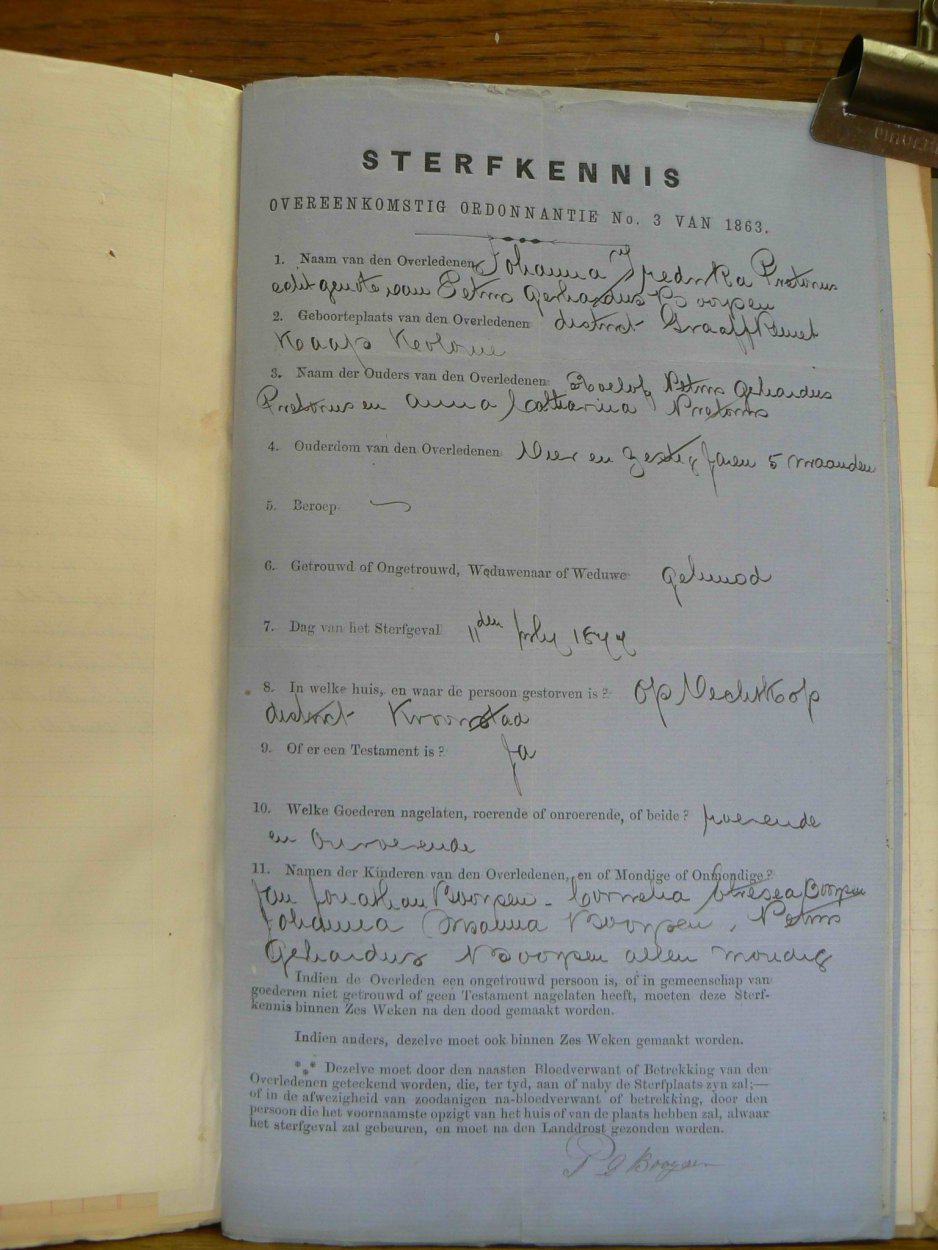 STERFKENNIS
OVEREENKOMSTIG ORDONNANTIE No. 3 VAN 1863.
1. Naam van den Overledenen Johanna Fredrika Pretorius
echtgenote van Petrus Gerhardus Booysen
2. Geboorteplaats van den Overledenen district Graaff Reinet
Kaap Kolonie
3. Naam der Ouders van den Overledenen Roelof Petrus Gerhardus
Pretorius en Anna Catharina Pretorius
4. Ouderdom van den Overledenen Vier en Zestig Jaren 5 maanden
5. Beroep
6. Getrouwd of Ongetrouwd, Weduwenaar of Weduwe getrouwd
7. Dag van het Sterfgeval 11den July 1877
8. In welke huis, en waar de persoon gestorven is? op Vechtkop
district Kroonstad
9. Of er een Testament is? Ja
10. Welke Goederen nagelaten, roerende of onroerende, of beide? roerende
en onroerende
11. Namen der Kinderen van den Overledenen, en of Mondige of Onmondige?
Jan Jonathan Booysen - Cornelia Booysen
Johanna Booysen, Petrus
Gerhardus Booysen allen mondig
Indien de Overleden een ongetrouwd persoon is, of in gemeenschap van
goederen niet getrouwd of geen Testament nagelaten heeft, moeten deze Sterf-
kennis binnen Zes Weken na den dood gemaakt worden.
Indien anders, dezelve moet ook binnen Zes Weken gemaakt worden.
Dezelve moet door den naasten Bloedverwant of Betrekking van den
Overledenen geteekend worden, die, ter tyd, aan of naby de Sterfplaats zyn zal;—
of in de afwezigheid van zoodanigen na-bloedverwant of betrekking, door den
persoon die het voornaamste opzigt van het huis of van de plaats hebben zal, alwaar
het sterfgeval zal gebeuren, en moet na den Landdrost gezonden worden.
P G Booysen